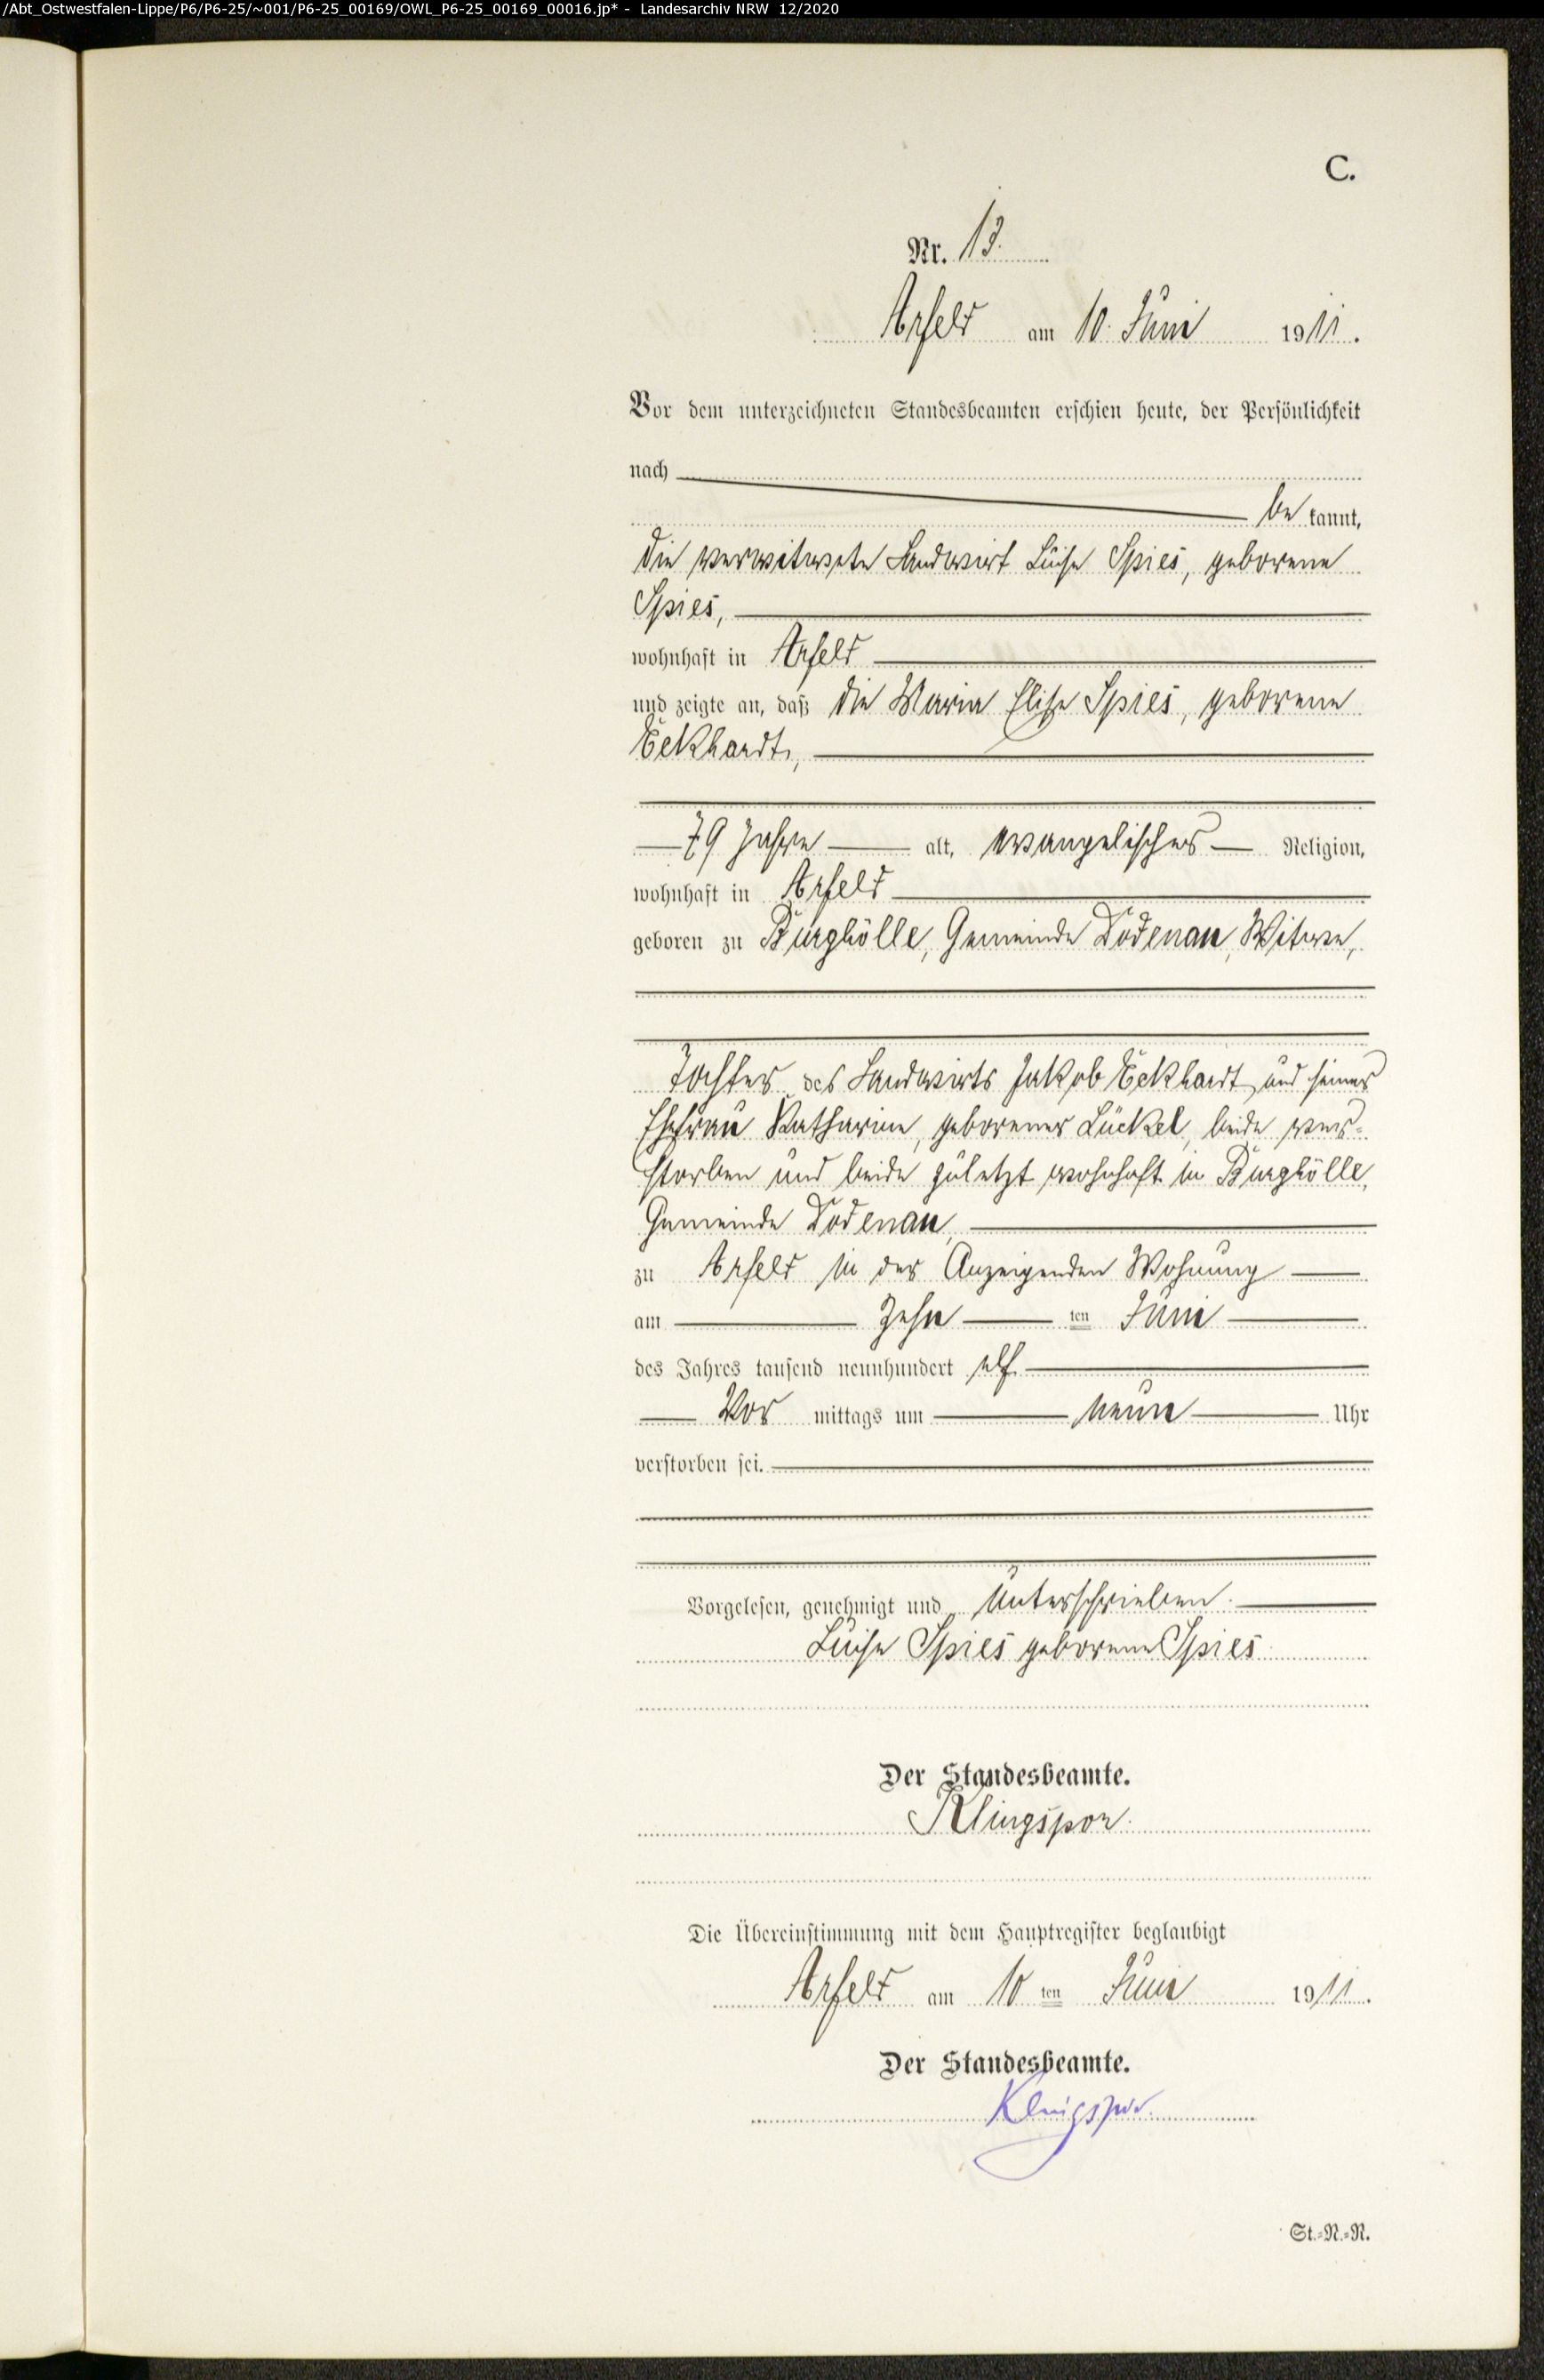 /Abt_Ostwestfalen-Lippe/P6/P6-25/~001/P6-25_00169/OWL_P6-25_00169_00016.jp* - Landesarchiv NRW 12/2020
C.
Nr. 13.
Arfeld am 10. Juni 1911.
Vor dem unterzeichneten Standesbeamten erschien heute, der Persönlichkeit
nach
be kannt,
die verwitwete Landwirt Luise Spies, geborene
Spies,
wohnhaft in Arfeld
und zeigte an, daß die Maria Elise Spies, geborene
Eckhardt,
79 Jahre alt, evangelischer Religion,
wohnhaft in Arfeld
geboren zu Burghölle, Gemeinde Dodenau, Witwe,
Tochter des Landwirts Jakob Eckhardt und seiner
Ehefrau Katharine, geborener Lückel, beide ver-
storben und beide zuletzt wohnhaft in Burghölle,
Gemeinde Dodenau,
zu Arfeld in der Anzeigenden Wohnung
am zehn ten Juni
des Jahres tausend neunhundert elf
Vor mittags um neun Uhr
verstorben sei.
Vorgelesen, genehmigt und unterschrieben.
Luise Spies geborene Spies
Der Standesbeamte.
Klingspor.
Die Übereinstimmung mit dem Hauptregister beglaubigt
Arfeld am 10 ten Juni 1911.
Der Standesbeamte.
Klingspor.
St.=N.=N.